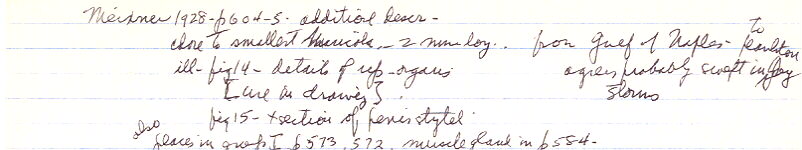 Meixner 1928 - p604-5 - additional descr -
close to smallest - 2 mm long.. from Gulf of Naples - to plankton
ill - fig 14 - details of rep. organs agrees probably swept in by
[use as drawing]. storms
fig 15 - x section of penis stylet
also places in group I p573, 572, muscle gland in p584 -